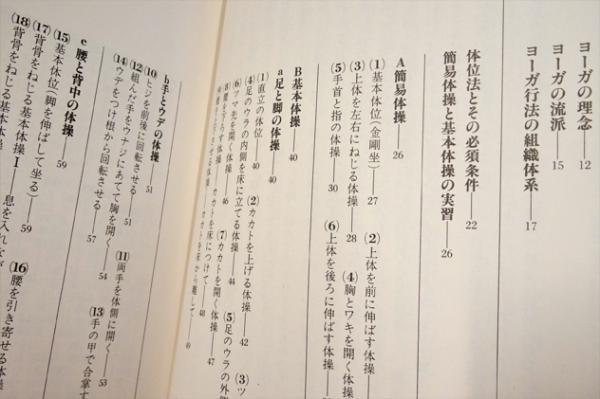 ヨーガの理念——12
ヨーガの流派——15
ヨーガ行法の組織体系——17
体位法とその必須条件——22
簡易体操と基本体操の実習——26
A 簡易体操——26
(1)基本体位(金剛坐)——27 (2)上体を前に伸ばす体操
(3)上体を左右にねじる体操——28 (4)胸とワキを開く体操
(5)手首と指の体操——30 (6)上体を後ろに伸ばす体操
B 基本体操——40
a 足と脚の体操——40
(1)直立の体位——40 (2)カカトを上げる体操——42 (3)ツ
(4)足のウラの内側を床に立てる体操——44 (5)足のウラの外
(6)ツマ先を開く体操——46 (7)カカトを開く体操——47
カカトを床につけて——48
カカトを床から離して——49
b 手とウデの体操——51
(10)ヒジを前後に回転させる——51 (11)両手を体側に開く——53
(12)組んだ手をウナジにあてて胸を開く——54 (13)手の甲で合掌す
(14)ウデをつけ根から回転させる——57
c 腰と背中の体操——59
(15)基本体位(脚を伸ばして坐る)——59 (16)腰を引き寄せる体操
(17)背骨をねじる基本体操Ⅰ——息を入れなが
(18)背骨をねじる基本体操